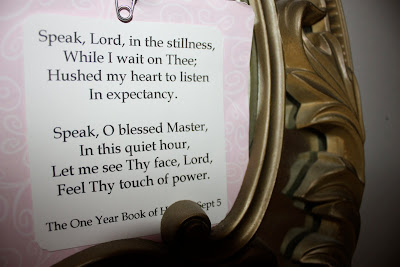 Speak, Lord, in the stillness,
While I wait on Thee;
Hushed my heart to listen
In expectancy.
Speak, O blessed Master,
In this quiet hour,
Let me see Thy face, Lord,
Feel Thy touch of power.
The One Year Book of Sept 5